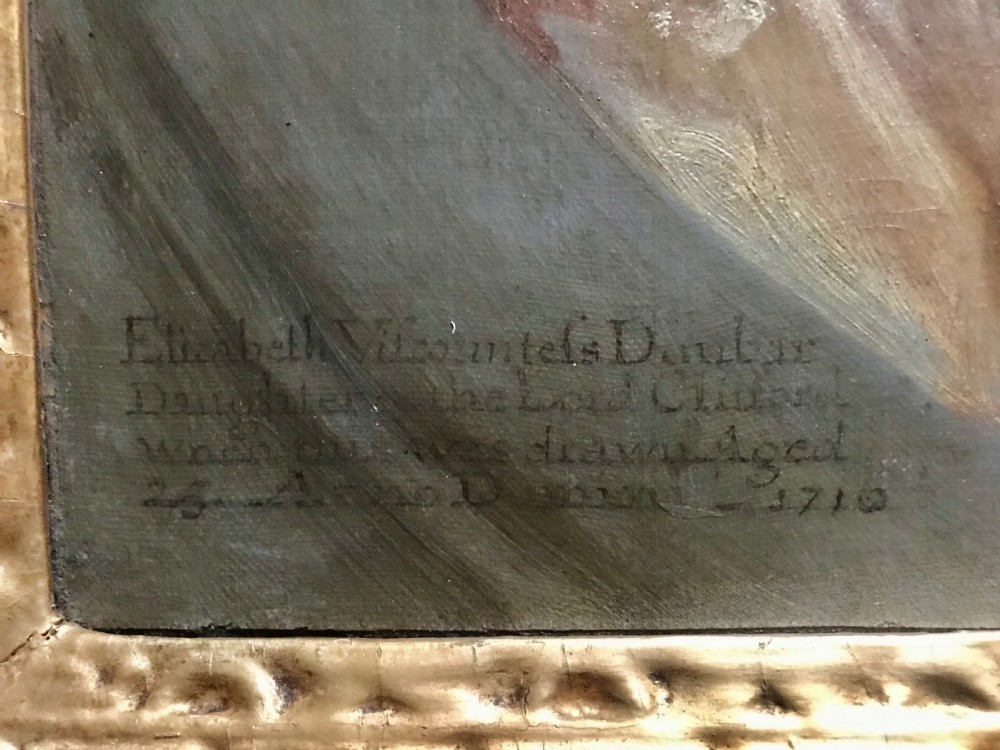 Elizabeth Viſcounteſs Dunbar
Daughter the Lord Clifford
was drawn Aged
Anno Domini 1710